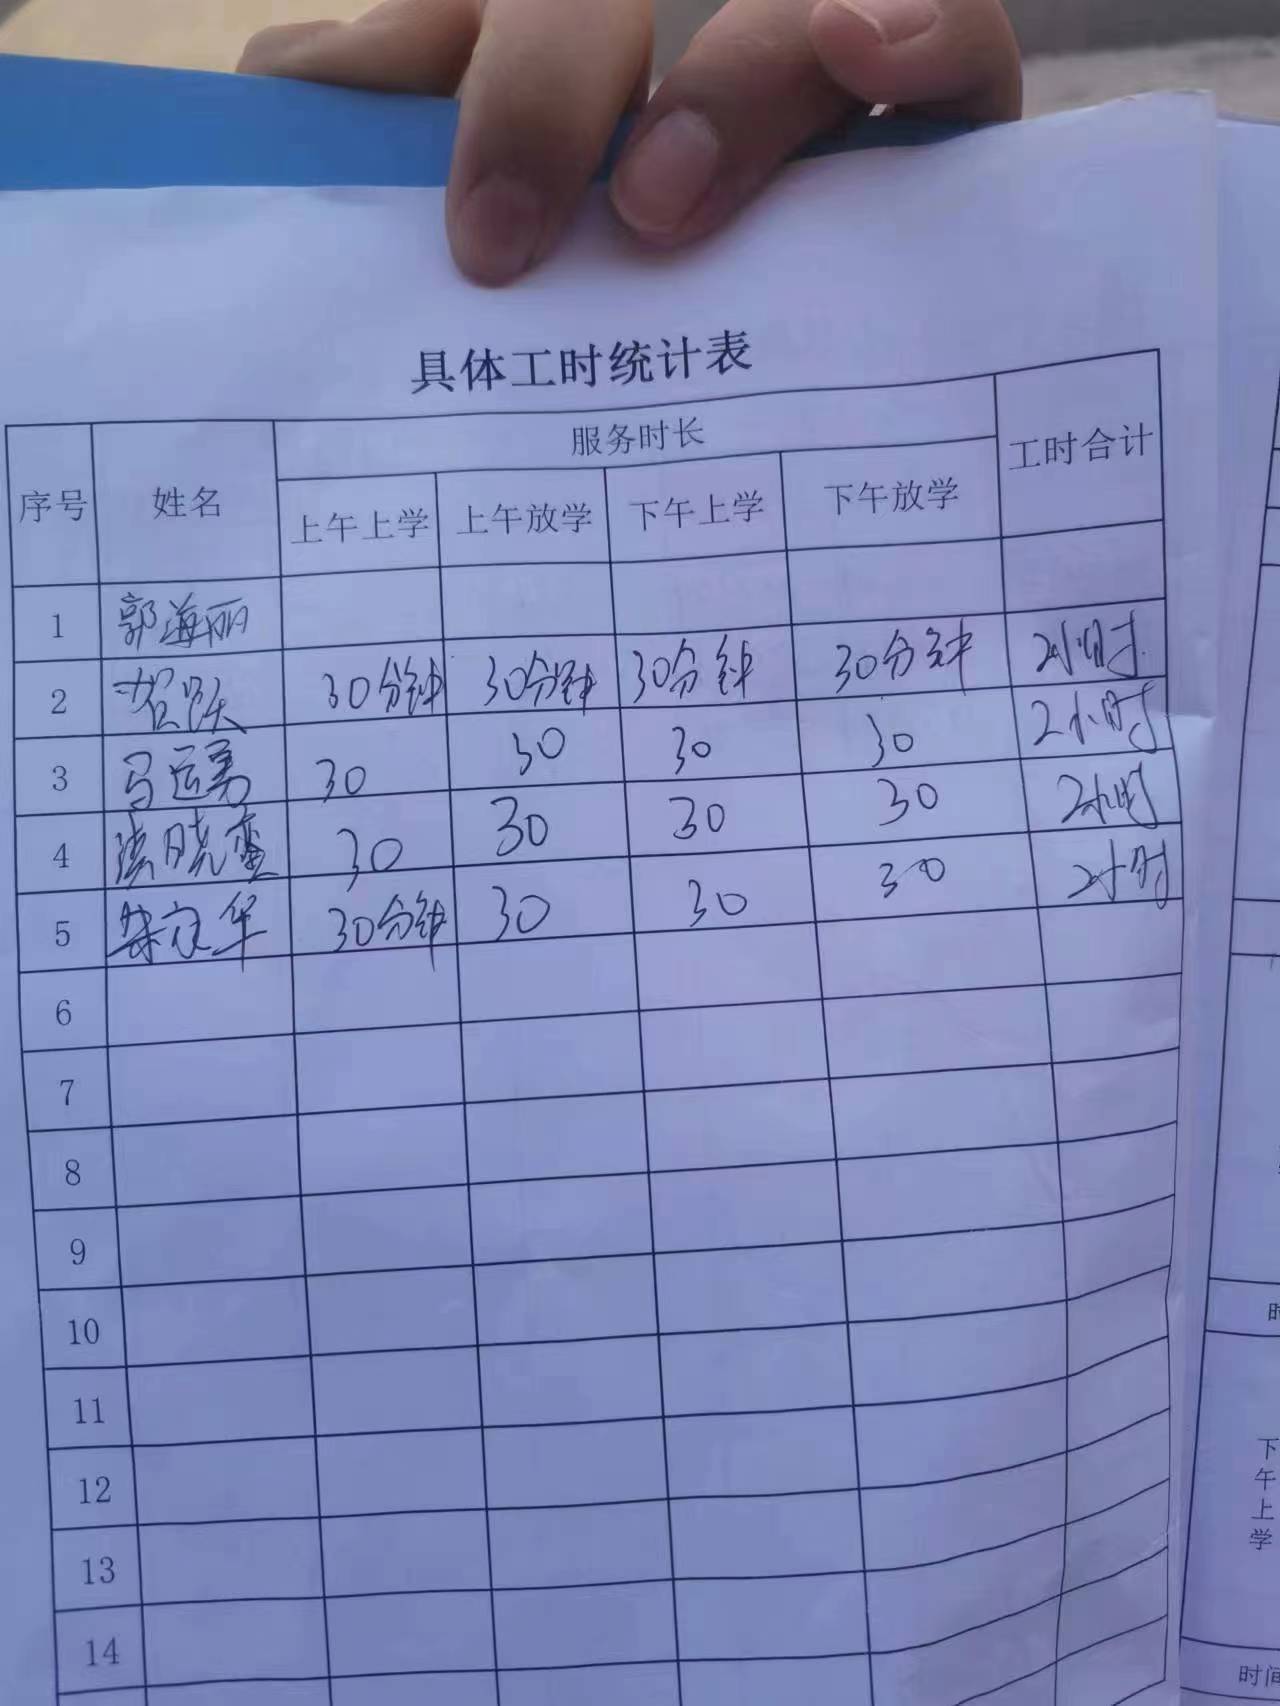 具体工时统计表
序号 姓名 服务时长 工时合计
上午上学 上午放学 下午上学 下午放学
1 郭海丽
2 贺跃 30分钟 30分钟 30分钟 30分钟 2小时
3 马运勇 30 30 30 30 2小时
4 晓蛮 30 30 30 30 2小时
5 家华 30分钟 30 30 30 2小时
6
7
8
9
10
11
12
13
14
时
下午上学
时间